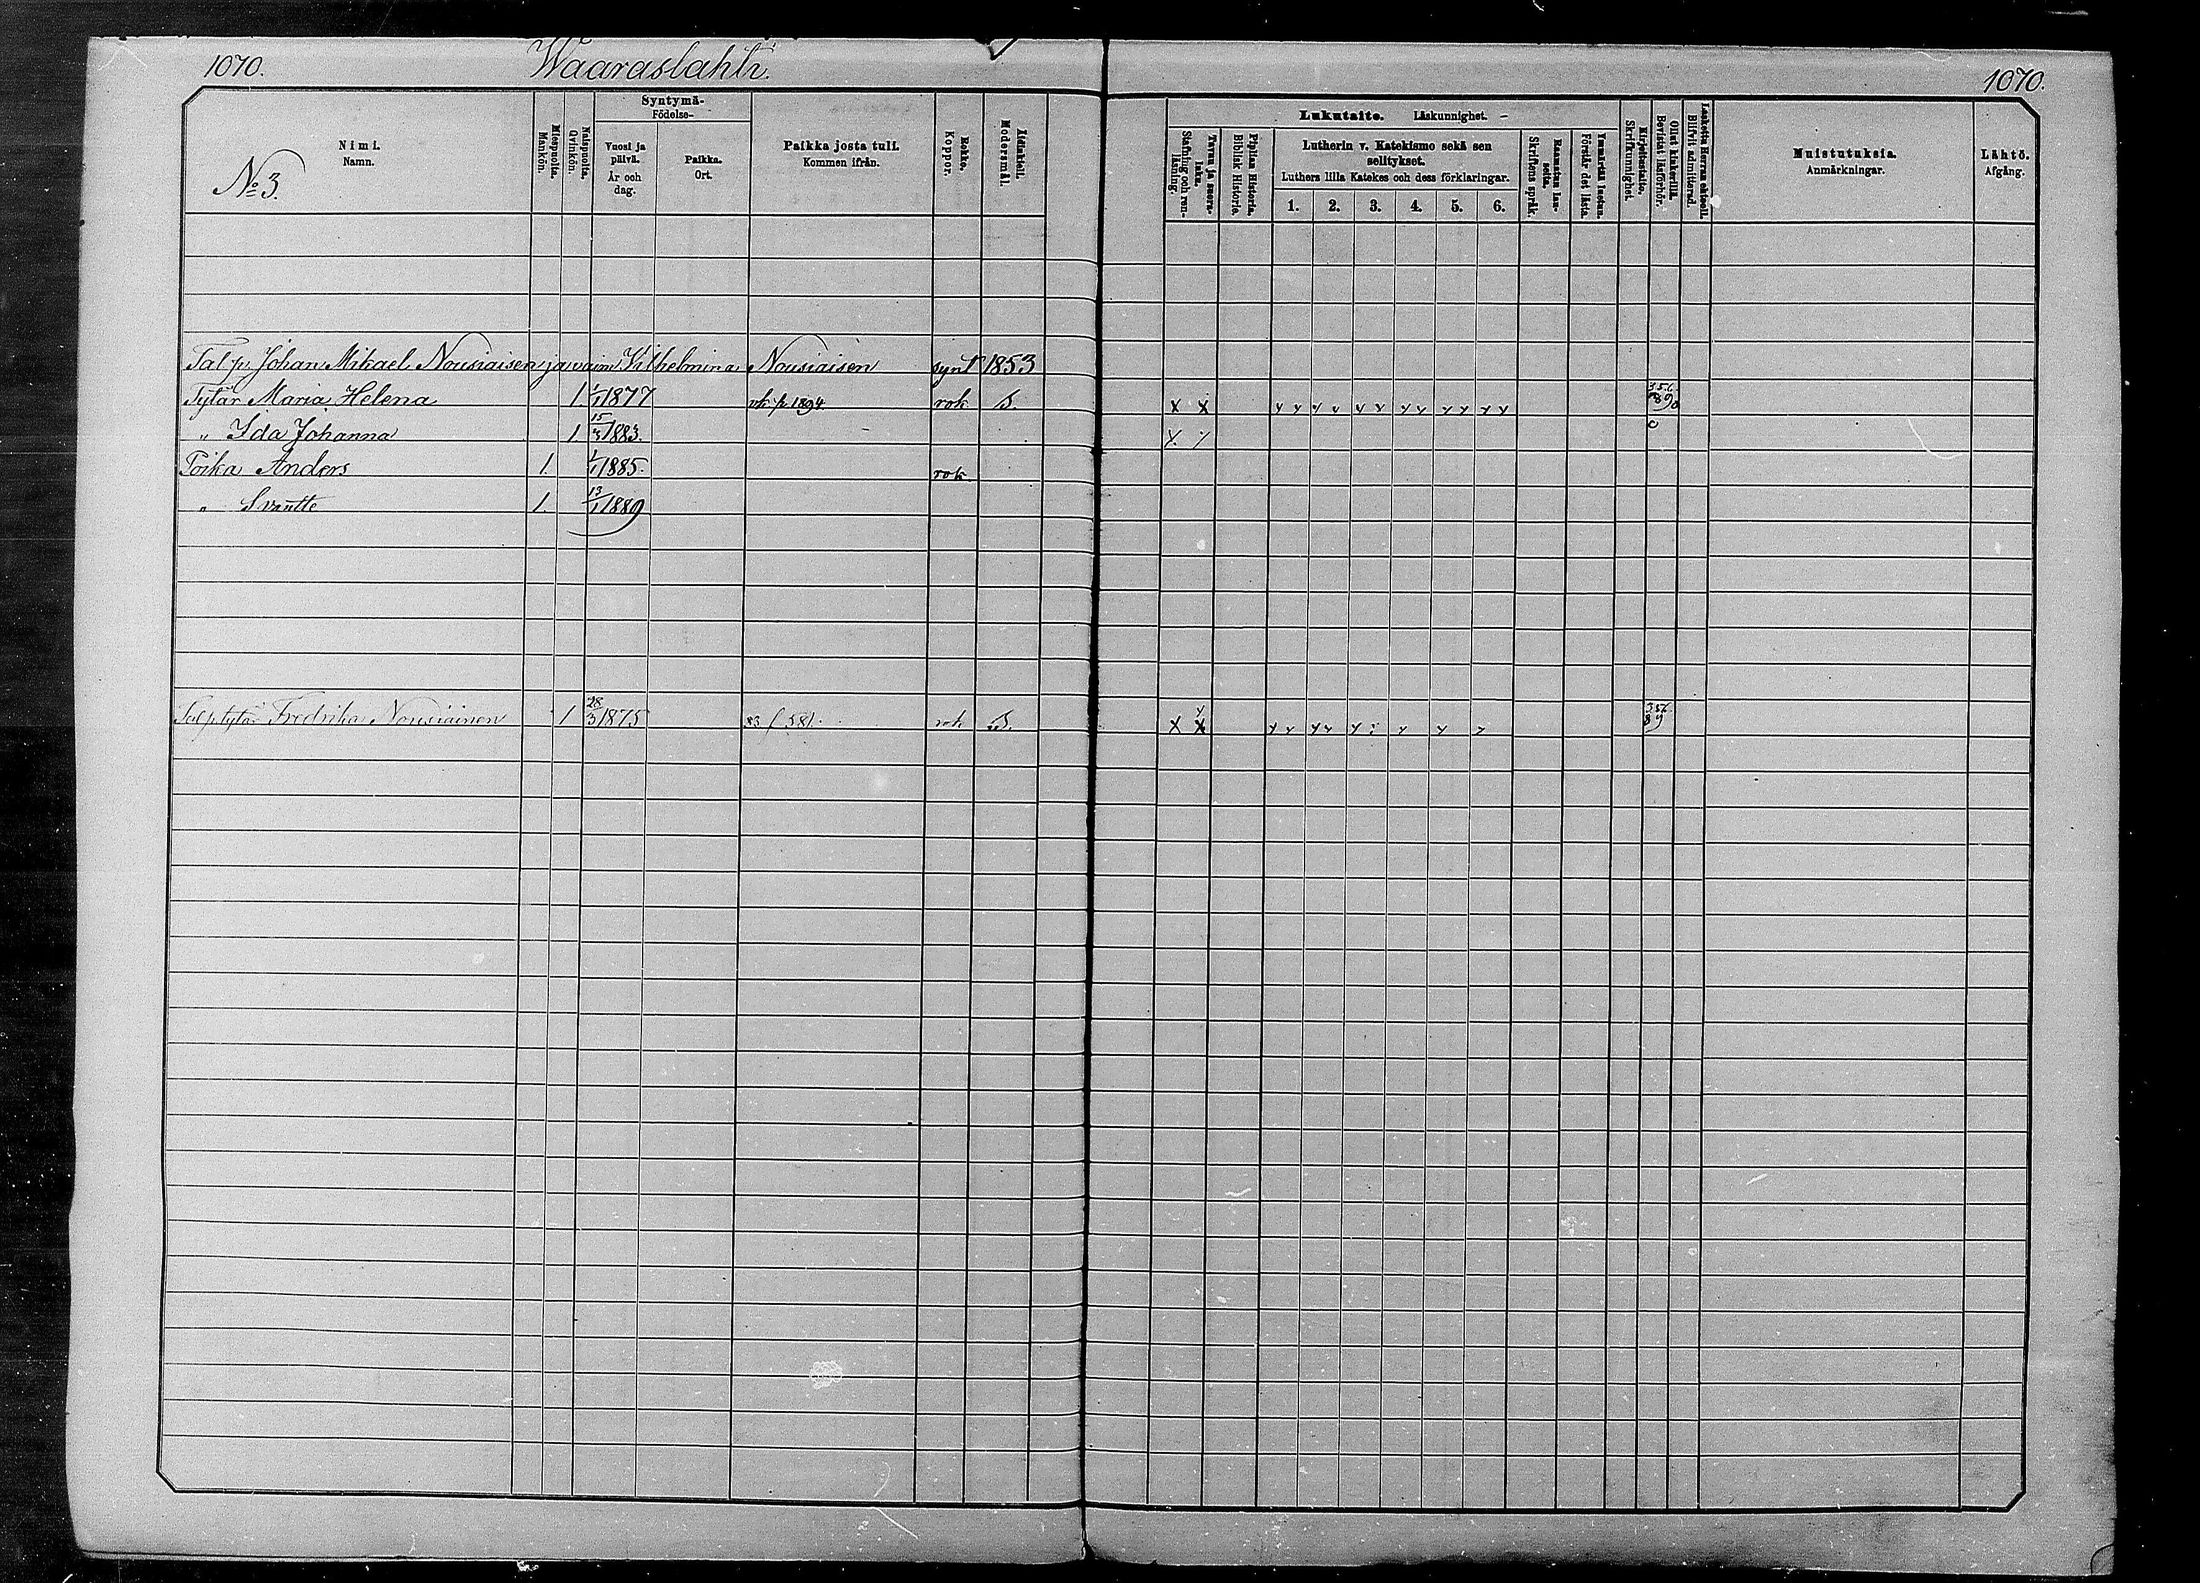 1070. Waaraslahti. 1070.
Nimi.
Namn.
No 3.
Miespuolia.
Mankön.
Naispuolia.
Qvinkön.
Syntymä-
Födelse-
Vuosi ja päivä.
År och dag.
Paikka.
Ort.
Paikka josta tuli.
Kommen ifrån.
Rokko.
Koppor.
Äidinkieli.
Modersmål.
Lukutaito. Läskunnighet.
Tavau ja suora-luku.
Stafning och ren-läsning.
Piplian Historia.
Biblisk Historie.
Lutherin v. Katekismo sekä sen selitykset.
Luthers lilla Katekes och dess förklaringar.
1. 2. 3. 4. 5. 6.
Raamatun lau-seita.
Skriftens språk.
Ymmärtää luetun.
Förstår det lästa.
Kirjoitustaito.
Skrifkunnighet.
Ollut kinkerillä.
Bevistat läsförhör.
Laskettu Herran ehtooll.
Blifvit admitterad.
Muistutuksia.
Anmärkningar.
Lähtö.
Afgång.
Tal.p. Johan Mikael Nousiaisen ja vaim. Vilhelmina Nousiaisen synt 1853
Tytär Maria Helena 1. 1/1 1877 rk. p. 1894. rok S. x x 356 89
„ Ida Johanna 1 15/3 1883. x
Poika Anders 1. 1/1 1885. rok
„ Svantte 1. 13/1 1889
Talp tytär Fredrika Nousiainen 1 28/3 1875 83 (58). rok S. x x 356 89